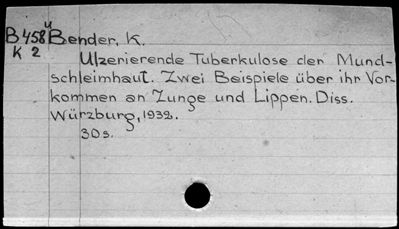 B 458 u Bender, K.
K 2
Ulzerierende Tuberkulose der Mund-
schleimhaut. Zwei Beispiele über ihr Vor-
kommen an Zunge und Lippen. Diss.
Würzburg, 1932.
30 s.